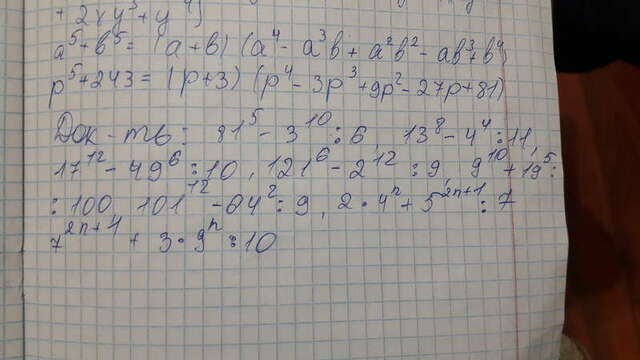 + 2xy³ + y⁴)
a⁵+b⁵= (a+b) (a⁴- a³b + a²b² - ab³+b⁴)
p⁵+243 = (p+3) (p⁴- 3p³+9p²- 27p+81)
Док-ть: 81⁵- 3¹⁰⋮6 13⁸- 4⁴⋮11,
17¹²- 49⁶⋮10, 121⁶- 2¹²⋮9, 9¹⁰+19⁵⋮
⋮100 101¹²-64²⋮9, 2·4ⁿ+ 5²ⁿ⁺¹⋮7
7²ⁿ⁺⁴ + 3·9ⁿ⋮10